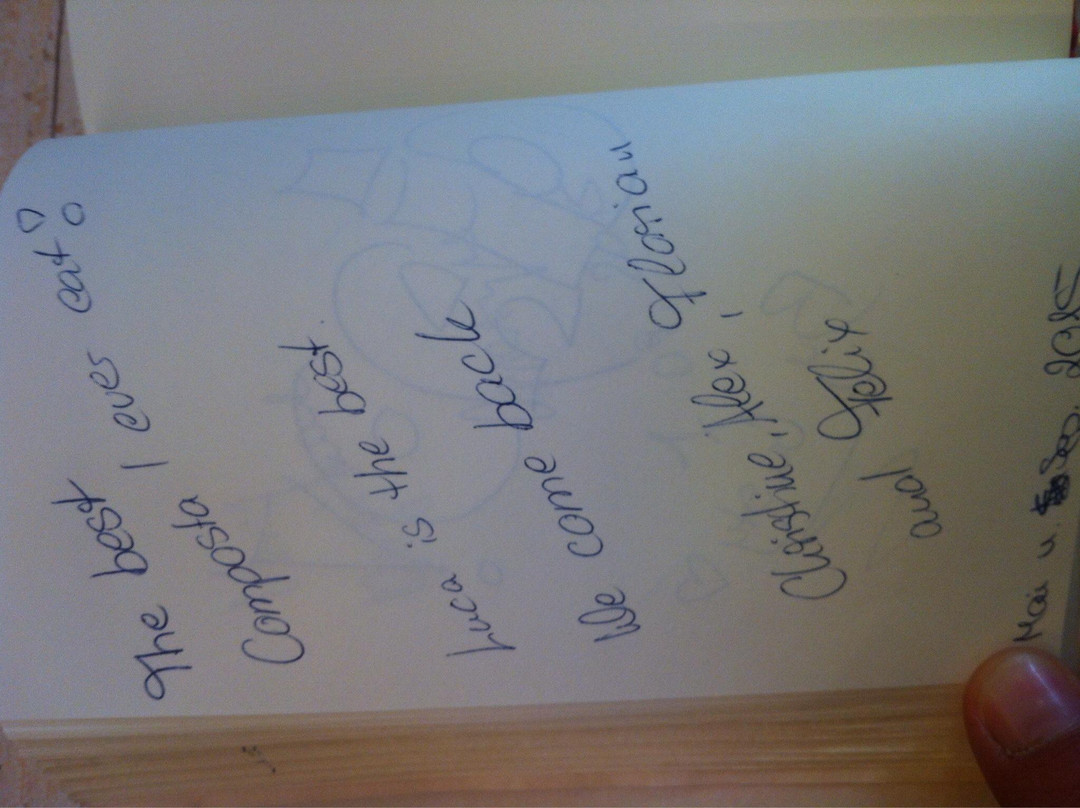 The best
Composta I ever eat!
Luca is the best.
We come back
Christine, Alex, Florian
and Felix
Mai u. Sep. 2015